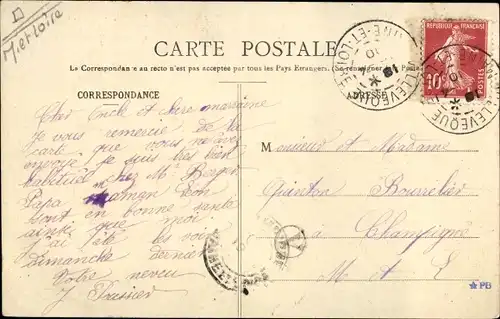 M. et Loire
CARTE POSTALE
La Correspondance au recto n'est pas acceptée par tous les Pays Etrangers.
CORRESPONDANCE
ADRESSE
REPUBLIQUE FRANÇAISE
10
POSTES
MAINE-ET-LOIRE
Cher Oncle et chère marraine
Je vous remercie de la
carte que vous m'avez
envoyé je suis très bien
habitué chez M. Berger
Papa maman Léon
sont en bonne santé
ainsi que moi
j'ai été les voir
Dimanche dernier
Votre neveu
J Prussier
Monsieur et Madame
Quinton Bourrelier
à Champigné
M et L
PB